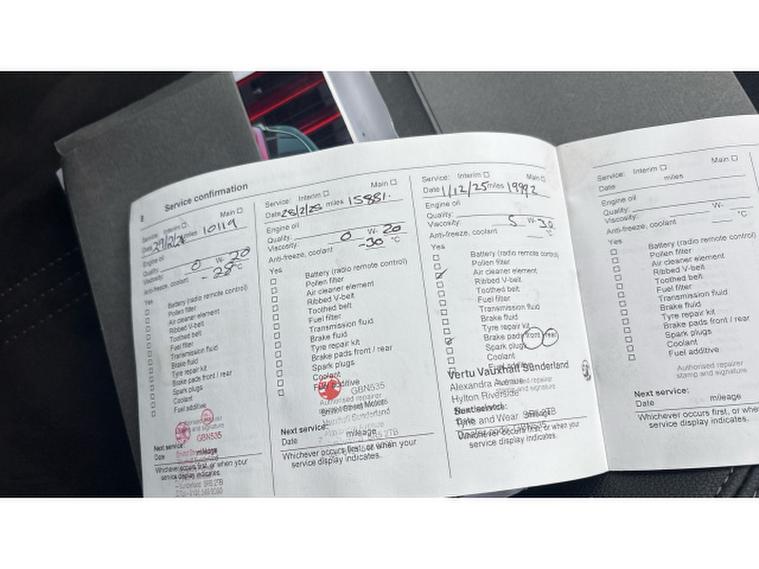 8 Service confirmation
Service: Interim Main
Date 29/2/24 miles 10119
Engine oil
Quality:
Viscosity: 0 W- 20
Anti-freeze, coolant -28 °C
Yes
Battery (radio remote control)
Pollen filter
Air cleaner element
Ribbed V-belt
Toothed belt
Fuel filter
Transmission fluid
Brake fluid
Tyre repair kit
Brake pads front / rear
Spark plugs
Coolant
Fuel additive
stamp and signature
GBN535
Next service:
Date mileage
Whichever occurs first, or when your
service display indicates.
Sunderland SR5 2TB
Service: Interim Main
Date 28/2/25 miles 15881.
Engine oil
Quality:
Viscosity: 0 W- 20
Anti-freeze, coolant -30 °C
Yes
Battery (radio remote control)
Pollen filter
Air cleaner element
Ribbed V-belt
Toothed belt
Fuel filter
Transmission fluid
Brake fluid
Tyre repair kit
Brake pads front / rear
Spark plugs
Coolant
Fuel additive
GBN535
Authorised repairer
Bristol Street Motors
Vauxhall Sunderland
Next service:
Date mileage
Whichever occurs first, or when your
service display indicates.
Service: Interim Main
Date 1/12/25 miles 19992
Engine oil
Quality:
Viscosity: 5 W- 30
Anti-freeze, coolant °C
Yes
Battery (radio remote control)
Pollen filter
Air cleaner element
Ribbed V-belt
Toothed belt
Fuel filter
Transmission fluid
Brake fluid
Tyre repair kit
Brake pads front / rear
Spark plugs
Coolant
Vertu Vauxhall Sunderland
Alexandra Avenue
Hylton Riverside
Tyne and Wear SR5 2TB
Whichever occurs first, or when your
service display indicates.
Service: Interim Main
Date miles
Engine oil
Quality:
Viscosity: W-
Anti-freeze, coolant °C
Yes
Battery (radio remote control)
Pollen filter
Air cleaner element
Ribbed V-belt
Toothed belt
Fuel filter
Transmission fluid
Brake fluid
Tyre repair kit
Brake pads front / rear
Spark plugs
Coolant
Fuel additive
Authorised repairer
stamp and signature
Next service:
Date mileage
Whichever occurs first, or whe
service display indicates.